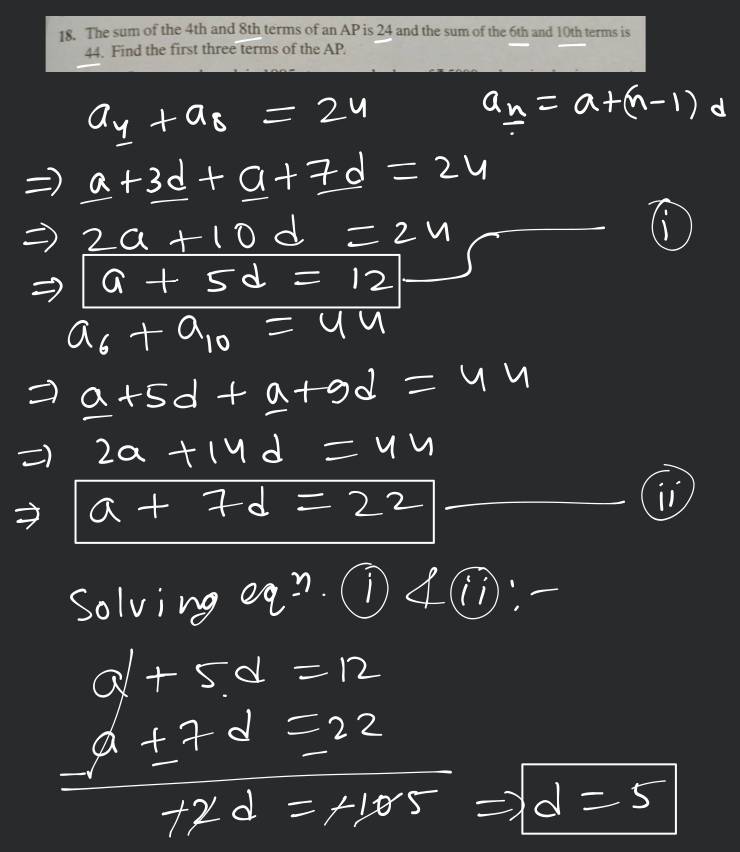 18. The sum of the 4th and 8th terms of an AP is 24 and the sum of the 6th and 10th terms is
44. Find the first three terms of the AP.
a₄ + a₈ = 24 aₙ = a+(n-1) d
=> a+3d + a+7d = 24
=> 2a +10d = 24 (i)
=> a + 5d = 12
a₆ + a₁₀ = 44
=> a+5d + a+9d = 44
=> 2a +14d = 44
=> a + 7d = 22 (ii)
Solving eqⁿ. (i) & (ii) :-
a + 5d = 12
a + 7d = 22
+2d = +10 5 => d = 5